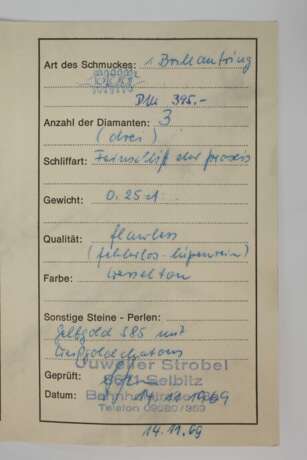 Art des Schmuckes: 1 Brillantring
DM 395.-
Anzahl der Diamanten: 3
(drei)
Schliffart: Feinschliff der praxis
Gewicht: 0.25 ct.
Qualität: flawless
(fehlerlos-lupenrein)
Farbe: wesselton
Sonstige Steine - Perlen:
Gelbgold 585 mit
Weißgoldchatons
Juwelier Strobel
Geprüft: 8671 Selbitz
Datum: 14.11.1969
Telefon
14.11.69